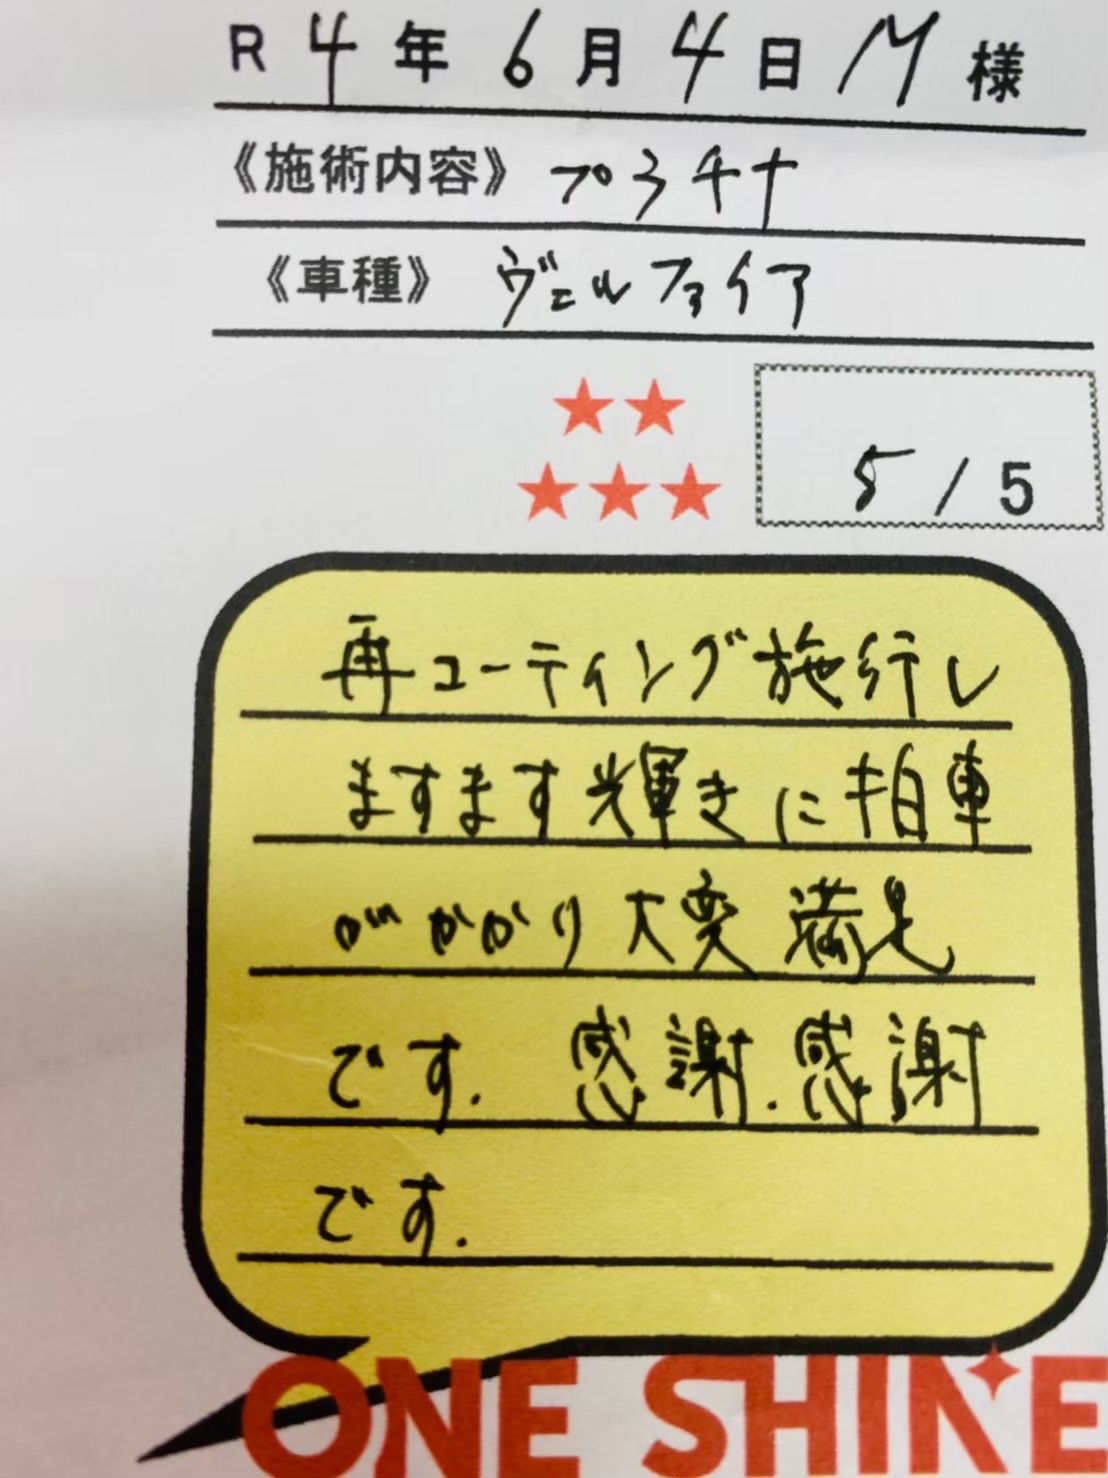 R 4年 6月 4日 M 様
《施術内容》 プラチナ
《車種》 ヴェルファイア
★★
★★★
5/5
再コーティング施行し
ますます輝きに拍車
がかかり大変満足
です. 感謝.感謝
です.
ONE SHINE